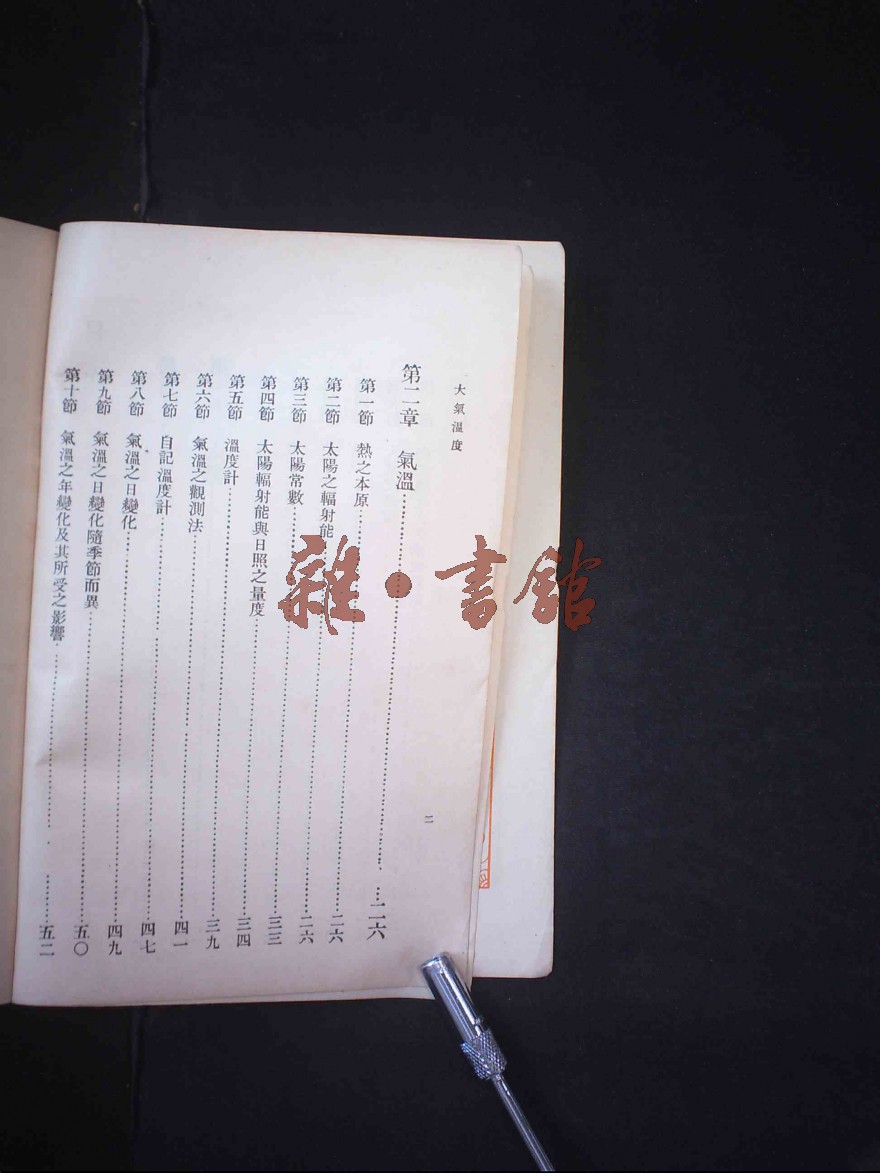 大氣溫度
二
第二章 氣溫……………………二六
第一節 熱之本原……………………二六
第二節 太陽之輻射能……………………二六
第三節 太陽常數……………………三三
第四節 太陽輻射能與日照之量度……………………三四
第五節 溫度計……………………三九
第六節 氣溫之觀測法……………………四一
第七節 自記溫度計……………………四七
第八節 氣溫之日變化……………………四九
第九節 氣溫之日變化隨季節而異……………………五〇
第十節 氣溫之年變化及其所受之影響……………………五二
雜·書館